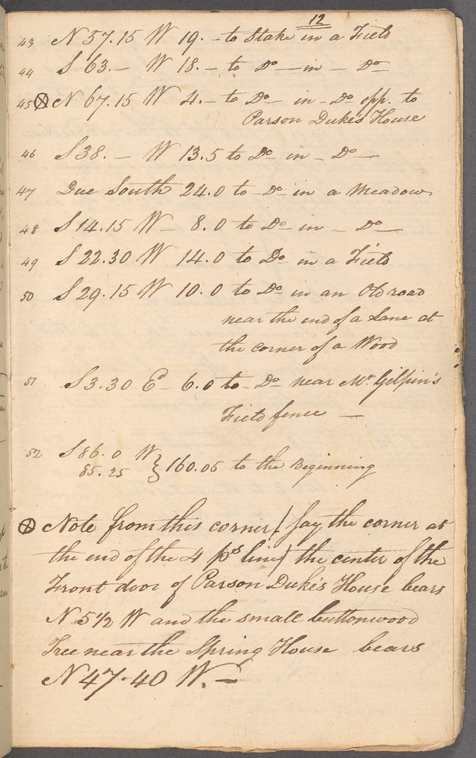 12
43 N 57.15 W 19.- to Stake in a Field
44 S 63.- W 18.- to Do - in - Do -
45 ⊗ N 67.15 W 4.- to Do - in - Do opp. to
Parson Duke's House
46 S 38.- W 13.5 to Do in - Do -
47 Due South 24.0 to Do in a Meadow
48 S 14.15 W - 8.0 to Do - in - Do -
49 S 22.30 W 14.0 to Do in a Field
50 S 29.15 W 10.0 to Do in an Old road
near the end of a Lane at
the corner of a Wood
51 S 3.30 E - 6.0 to - Do near Mr. Gilpin's
Field fence -
52 S 86.0 W } 160.05 to the Beginning
85.25
⊗ Note from this corner / say the corner at
the end of the 4 ps line / the center of the
Front door of Parson Duke's House bears
N 5 1/2 W and the small buttonwood
Tree near the Spring House bears
N 47.40 W. -